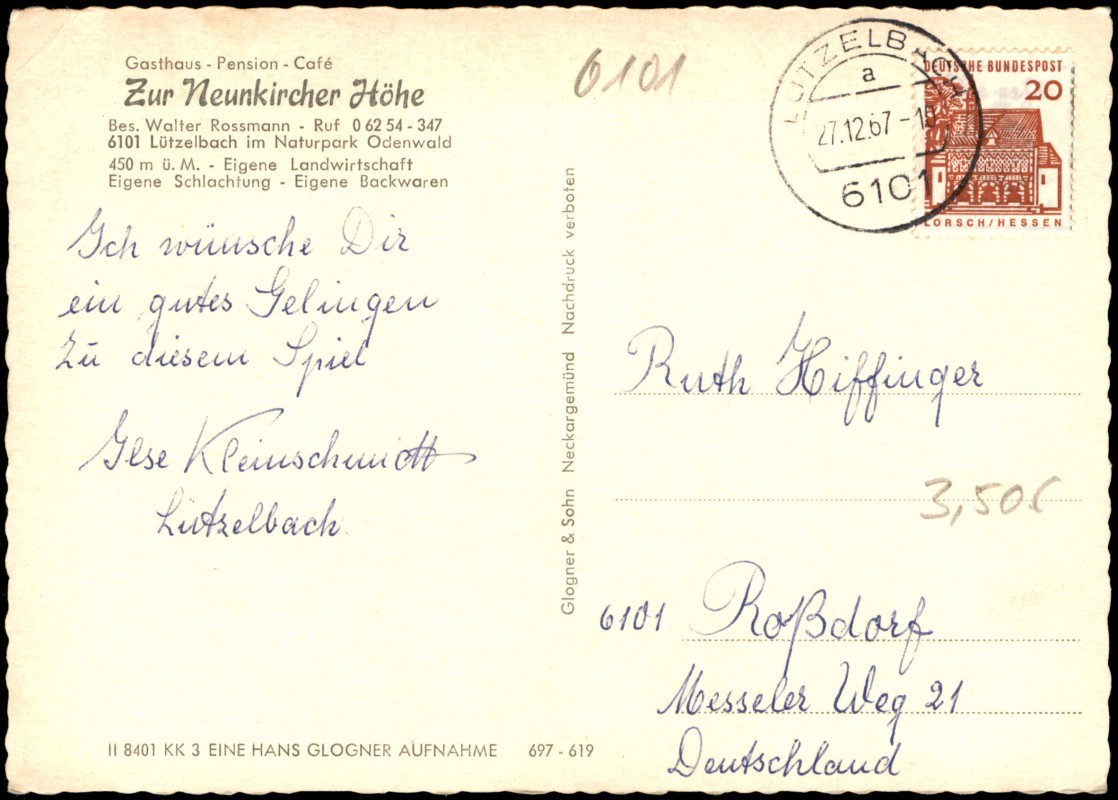 Gasthaus - Pension - Café
Zur Neunkircher Höhe
Bes. Walter Rossmann - Ruf 0 62 54 - 347
6101 Lützelbach im Naturpark Odenwald
450 m ü. M. - Eigene Landwirtschaft
Eigene Schlachtung - Eigene Backwaren
Ich wünsche Dir
ein gutes Gelingen
zu diesem Spiel
Ilse Kleinschmidt
Lützelbach
II 8401 KK 3 EINE HANS GLOGNER AUFNAHME 697 - 619
Glogner & Sohn Neckargemünd Nachdruck verboten
6101
LÜTZELBACH
a
27.12.67-18
6101
DEUTSCHE BUNDESPOST
20
LORSCH/HESSEN
Ruth Hiffinger
3,50
6101 Roßdorf
Messeler Weg 21
Deutschland